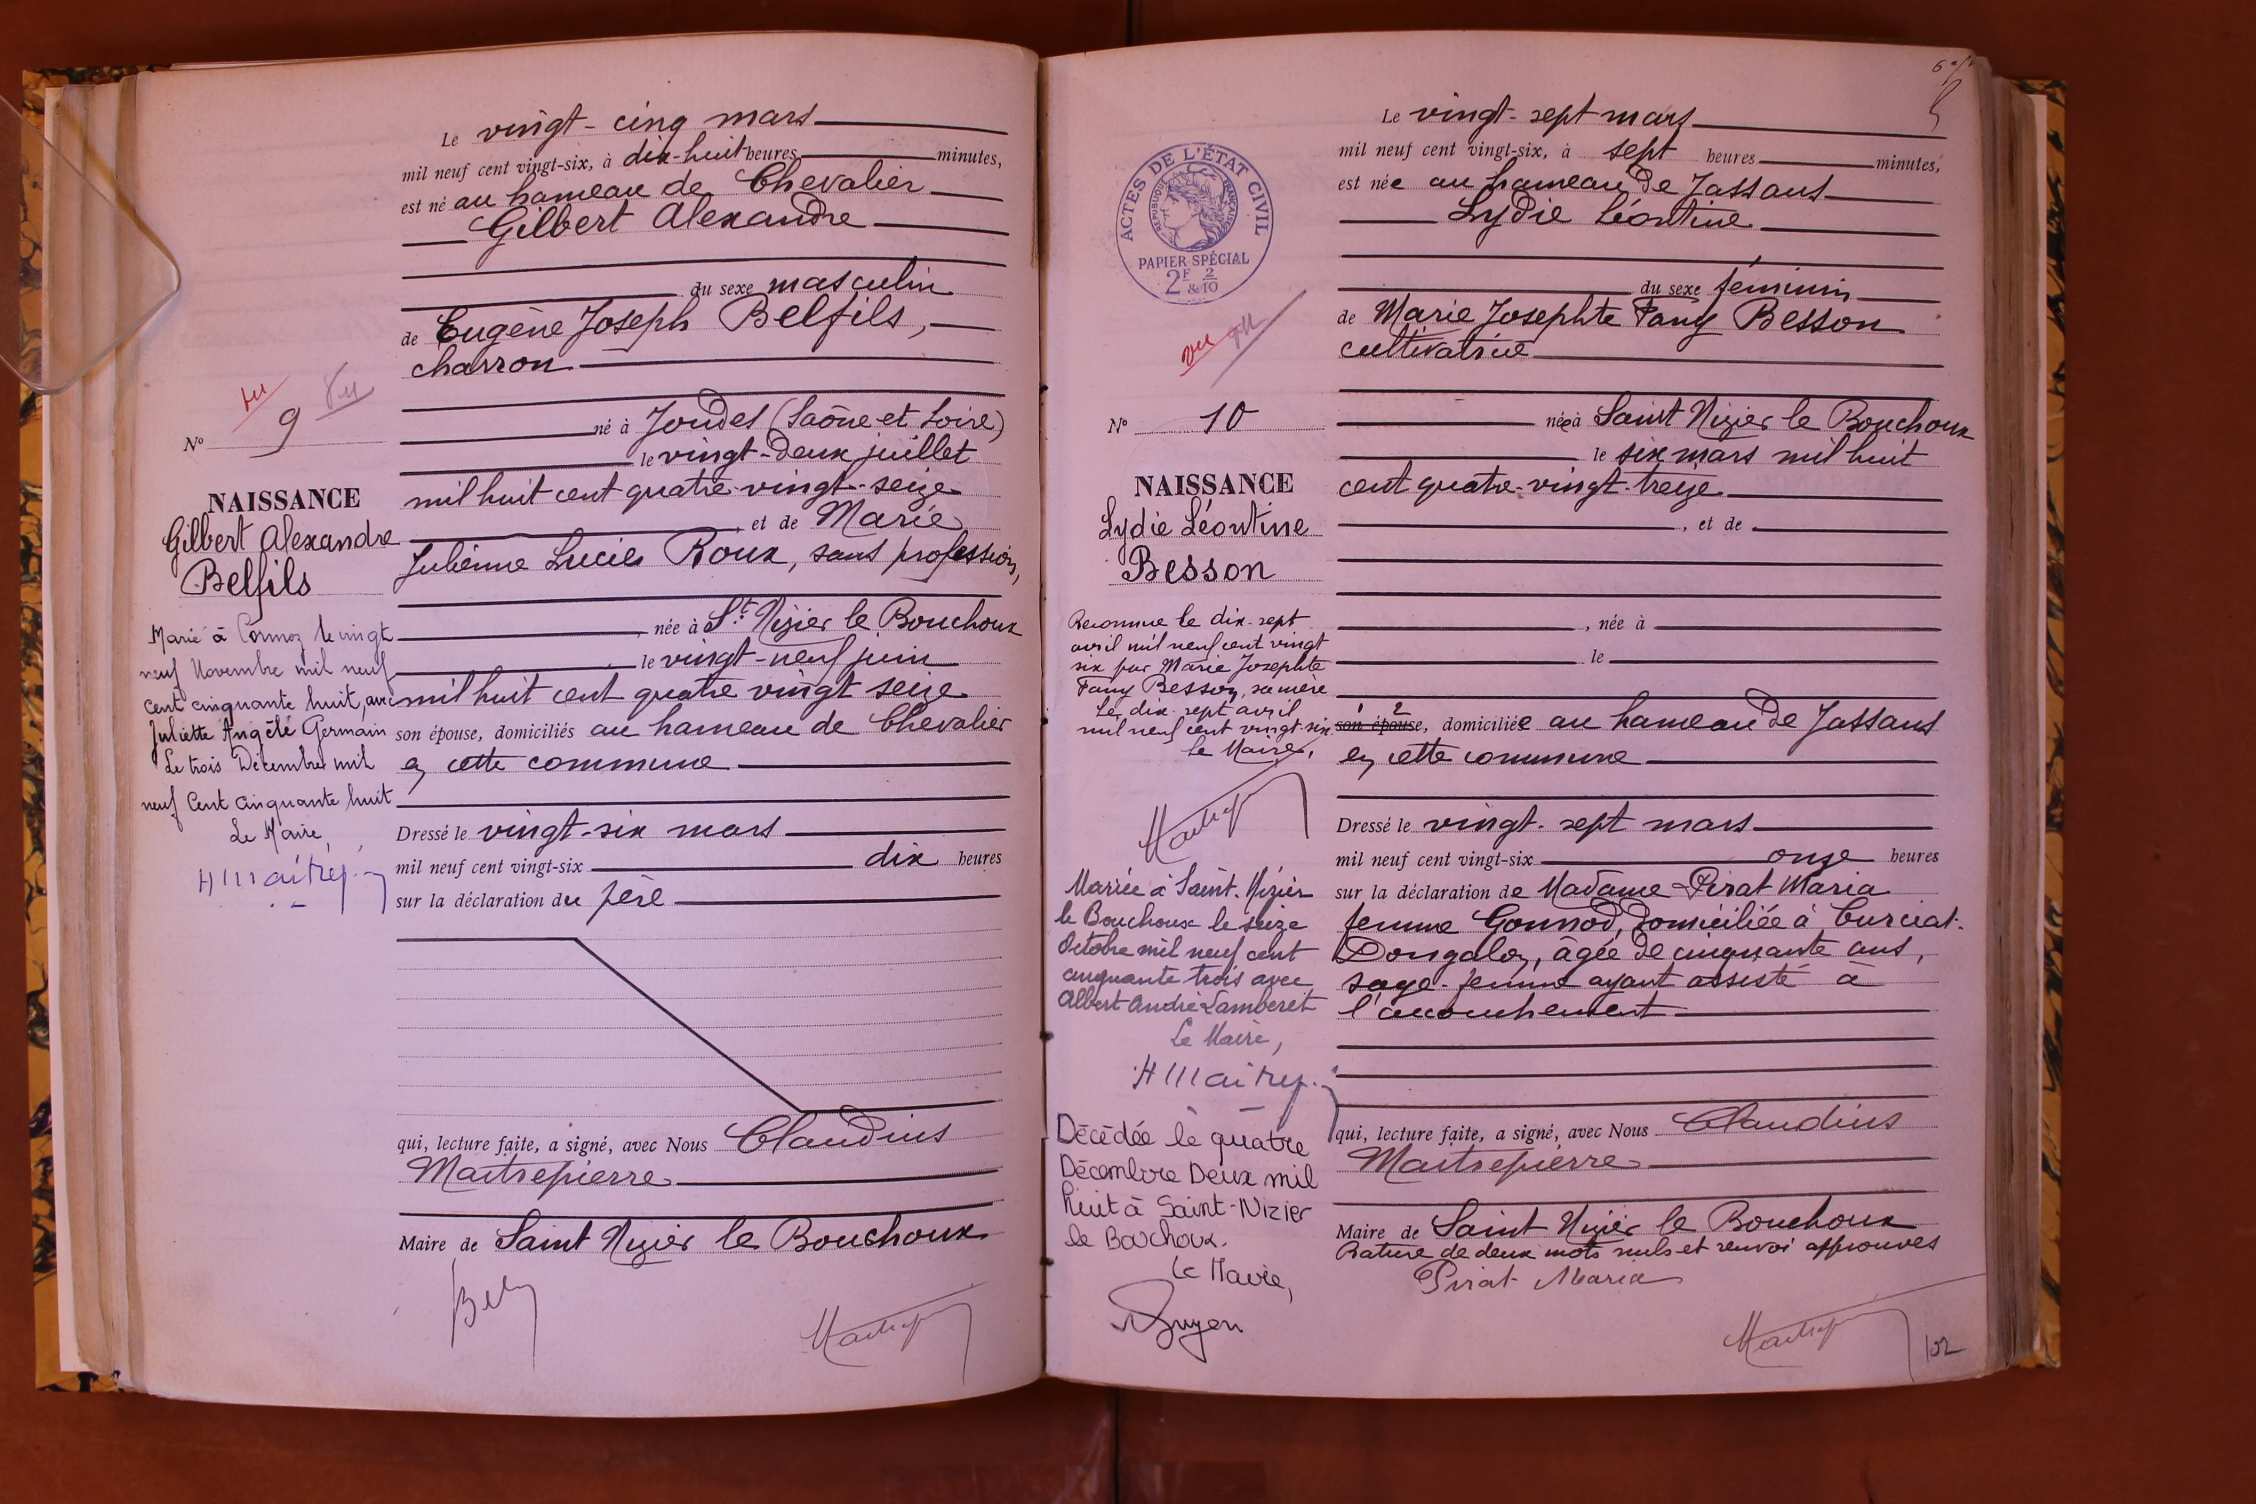 Le vingt-cinq mars
mil neuf cent vingt-six, à dix-huit heures minutes,
est né au hameau de Chevalier
Gilbert Alexandre
du sexe masculin
de Eugène Joseph Belfils,
charron
né à Joudes (Saône et Loire)
le vingt-deux juillet
mil huit cent quatre-vingt-seize
, et de Marie
Julienne Lucie Roux, sans profession,
, née à St Nizier le Bouchoux
le vingt-neuf juin
mil huit cent quatre vingt seize
son épouse, domiciliés au hameau de Chevalier
en cette commune
Dressé le vingt-six mars
mil neuf cent vingt-six dix heures
sur la déclaration du père
qui, lecture faite, a signé, avec Nous Claudius
Maitrepierre
Maire de Saint Nizier le Bouchoux
vu vu
No 9
NAISSANCE
Gilbert Alexandre
Belfils
Marié à Cormoz le vingt
neuf Novembre mil neuf
cent cinquante huit, avec
Juliette Angèle Germain
Le trois Décembre mil
neuf Cent cinquante huit
Le Maire,
ACTES DE L'ÉTAT CIVIL
RÉPUBLIQUE FRANÇAISE
PAPIER SPÉCIAL
2F & 2/10
vu vu
No 10
NAISSANCE
Lydie Léontine
Besson
Reconnue le dix-sept
avril mil neuf cent vingt
six par Marie Josephte
Fany Besson, sa mère
Le dix-sept avril
mil neuf cent vingt-six
le Maire,
Mariée à Saint-Nizier
le Bouchoux le seize
Octobre mil neuf cent
cinquante trois avec
Albert André Lamberet
Le Maire,
Décédée le quatre
Décembre Deux mil
huit à Saint-Nizier
le Bouchoux.
Le Maire,
Le vingt-sept mars
mil neuf cent vingt-six, à sept heures minutes,
est née au hameau de Jassans
Lydie Léontine
du sexe féminin
de Marie Josephte Fany Besson
cultivatrice
née à Saint Nizier le Bouchoux
le six mars mil huit
cent quatre-vingt-treize
, et de
, née à
le
1 2
son épouse, domiciliée au hameau de Jassans
en cette commune
Dressé le vingt-sept mars
mil neuf cent vingt-six onze heures
sur la déclaration de Madame Pirat Maria
femme Gonnod, domiciliée à Curciat-
Dongalon, âgée de cinquante ans,
sage-femme ayant assisté à
l'accouchement
qui, lecture faite, a signé, avec Nous Claudius
Maitrepierre
Maire de Saint Nizier le Bouchoux
Rature de deux mots nuls et renvoi approuvés
Pirat Maria
102